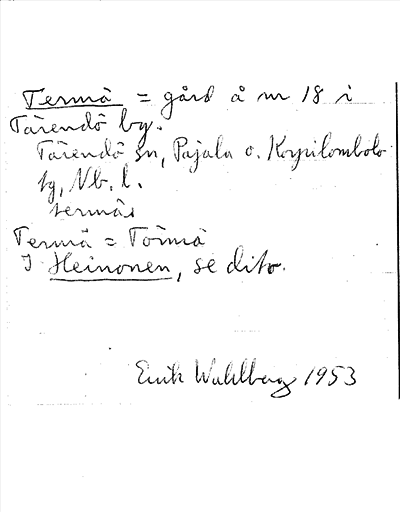 Termä = gård å nr 18 i
Tärendö by.
Tärendö sn, Pajala o. Korpilombolo
tg, Nb. l.
termäs
Termä = Törmä
I Heinonen, se dito.
Erik Wahlberg 1953